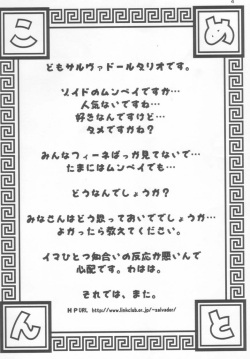 こ
め
ん
と
どもサルヴァドールタリオです。
ゾイドのムンベイですか…
人気ないですね…
好きなんですけど…
ダメですかね？
みんなフィーネばっか見てないで…
たまにはムンベイでも…
どうなんでしょうか？
みなさんはどう思っておいででしょうか…
よかったら教えてください。
イマひとつ知合いの反応が悪いんで
心配です。わはは。
それでは、また。
HP URL http://www.linkclub.or.jp/~salvador/